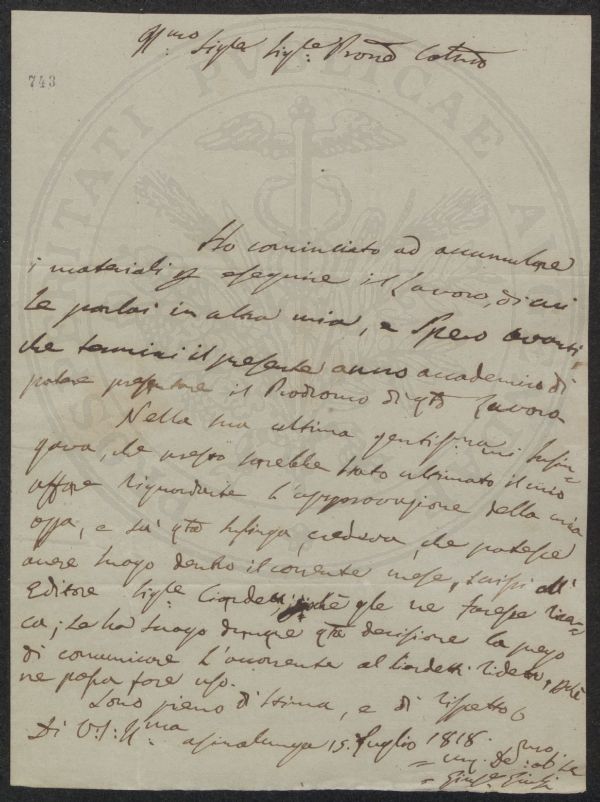 Ill.mo Sig.re Sig.re Prone Col.mo
743
Ho cominciato ad accumulare
i materiali p eseguire il Lavoro, di cui
Le parlai in altra mia, e spero avanti,
che termini il presente anno accademico di
potere presentare il Prodromo di q.to Lavoro
Nella sua ultima gentiss.ma mi lusin=
gava, che presto sarebbe stato ultimato il mio
affare riguardante l'approvazione della mia
opa, e su q.ta lusinga, credeva, che potesse
avere luogo dentro il corrente mese, e scrissi all'
Editore Sig.re Ciardetti, che ne facesse ricer=
ca; Se ha luogo dunque q.ta decisione la prego
di comunicare l'occorrente al Ciardetti
ne possa fare uso.
Sono pieno di stima, e di rispetto
Di V.S. Ill.ma
Asinalunga 15. Luglio 1818.